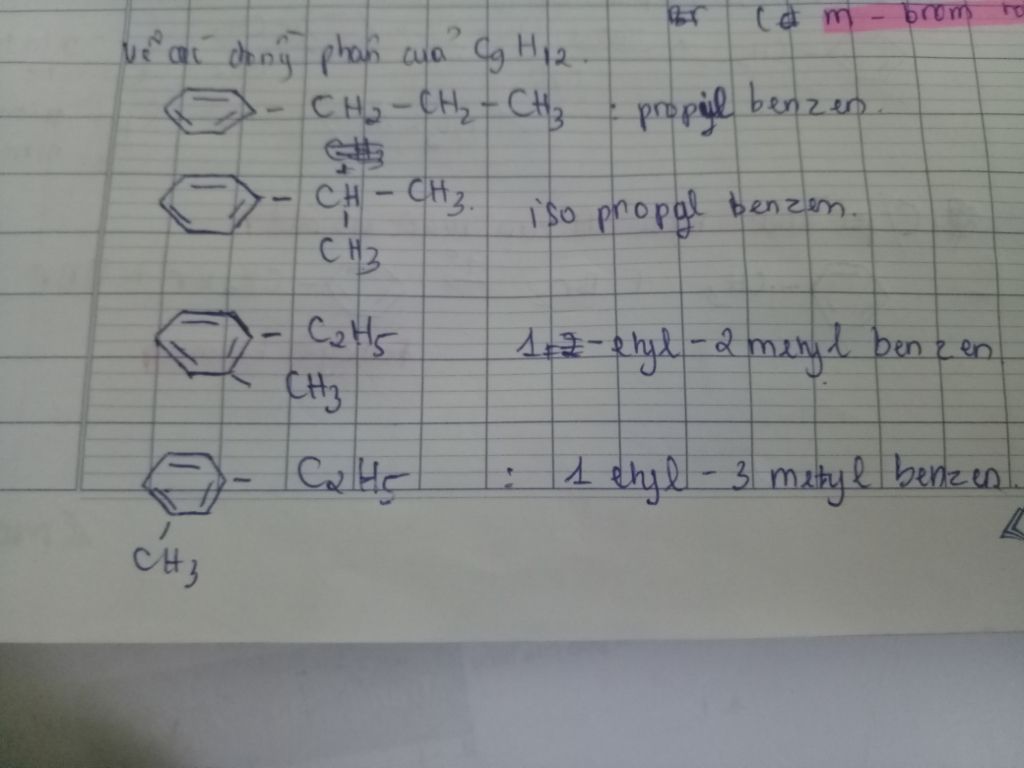 Br (d m - brom
Vẽ các đồng phân của C9H12.
- CH2 - CH2 - CH3 : propyl benzen.
- CH - CH3. iso propyl benzen.
CH3
- C2H5 1 - etyl - 2 metyl benzen
CH3
- C2H5 : 1 etyl - 3 metyl benzen.
CH3